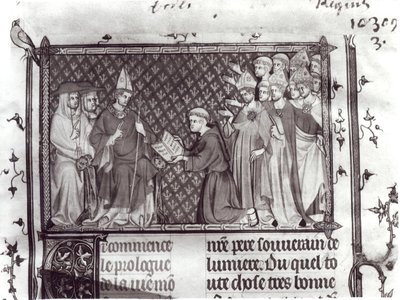 10309
3.
Ci commence
le prologue
de la uie mō
mẽ pere souuerain de
lumiere. Du quel to
ute chose tres bonne